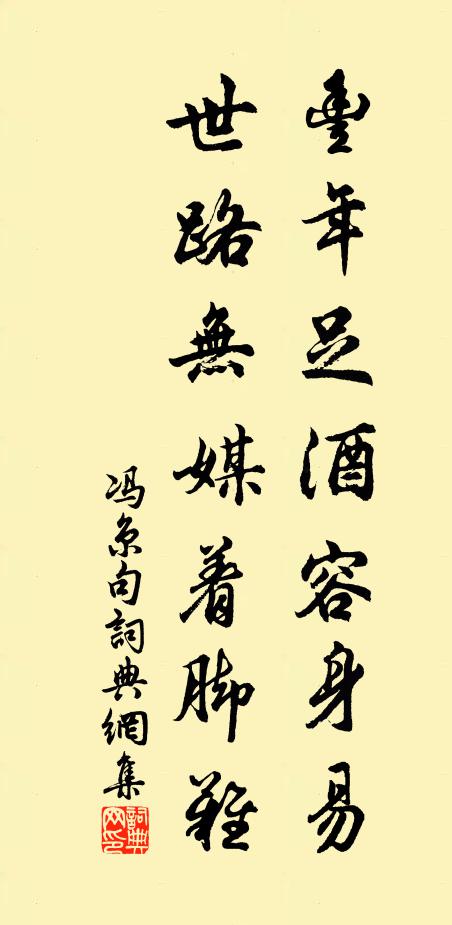 豐年足酒容身易
世路無媒着脚難
冯京句詞典網集
詞典网印